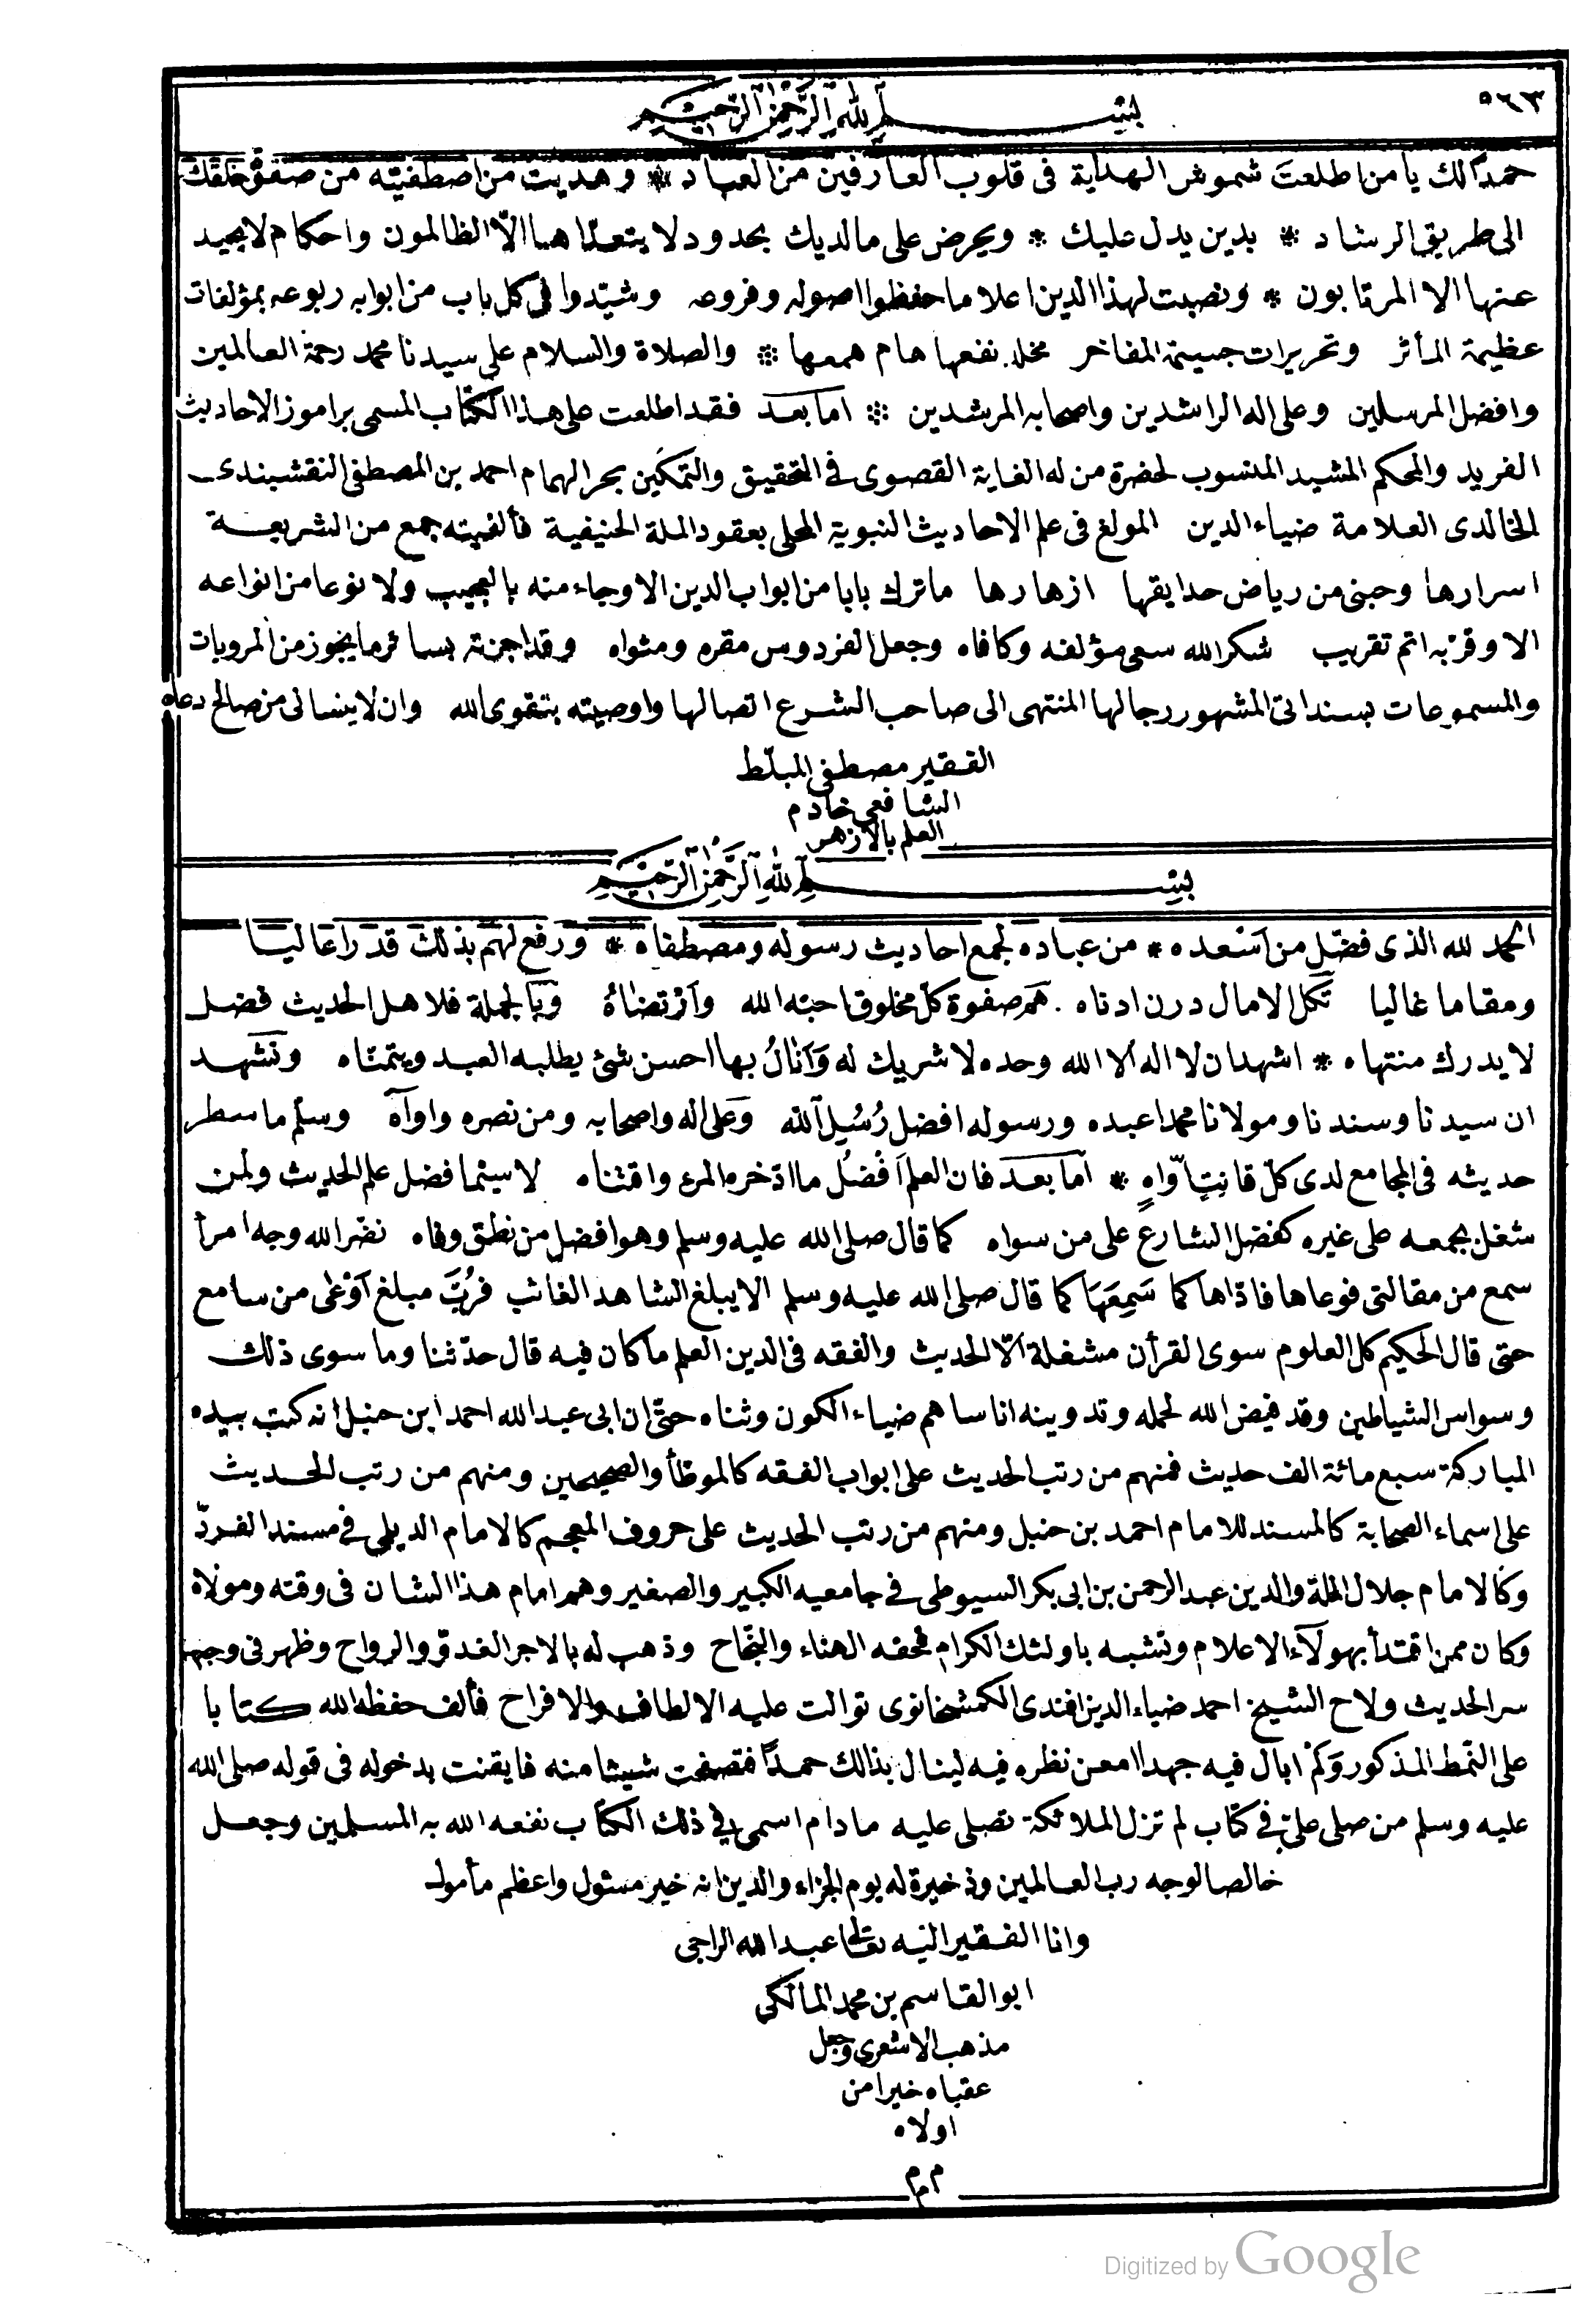 ٥٦٣
بسم الله الرحمن الرحيم
حمدا لك يا من اطلعت شموش الهداية فى قلوب العارفين من العباد * وهديت من اصطفيته من صفوة خلقك
الى طريق الرشاد * بدين يدل عليك * ويحرض على ما لديك بحدود لا يتعداها الّا الظالمون واحكام لا يحيد
عنها الا المرتابون * ونصبت لهذا الدين اعلاما حفظوا اصوله وفروعه وشيّدوا فى كل باب من ابوابه ربوعه بمؤلفات
عظيمة المأثر وتحريرات جسيمة المفاخر مخلد نفعها هام همعها * والصلاة والسلام على سيدنا محمد رحمة العالمين
وافضل المرسلين وعلى اله الراشدين واصحابه المرشدين * اما بعد فقد اطلعت على هذا الكتاب المسمى براموز الاحاديث
الفريد والمحكم المشيد المنسوب لحضرة من له الغاية القصوى فى التحقيق والتمكين بحر الهمام احمد بن المصطفى النقشبندى
الخالدى العلامة ضياء الدين المولغ فى علم الاحاديث النبوية المحلى بعقود الملة الحنيفية فألفيته جمع من الشريعة
اسرارها وجنى من رياض حدايقها ازهارها ما ترك بابا من ابواب الدين الا وجاء منه بالعجيب ولا نوعا من انواعه
الا وقرّبه اتم تقريب شكر الله سعى مؤلفه وكافاه وجعل الفردوس مقره ومثواه وقد اجزته بسائر ما يجوز من المرويات
والمسموعات بسنداتى المشهور رجالها المنتهى الى صاحب الشرع اتصالها واوصيته بتقوى الله وان لا ينسانى من صالح دعاه
الفقير مصطفى المبلّط
الشافعى خادم
العلم بالازهر
بسم الله الرحمن الرحيم
الحمد لله الذى فضّل من اسعده * من عباده لجمع احاديث رسوله ومصطفاه * ورفع لهم بذلك قدرا عاليا
ومقاما غاليا تكل الامال درن ادناه . هم صفوة كل مخلوق احبّه الله وارتضاه وبالجملة فلاهل الحديث فضل
لا يدرك منتهاه * اشهد ان لا اله الا الله وحده لا شريك له وانال بها احسن شئ يطلبه العبد ويتمنّاه ونشهد
ان سيدنا وسندنا ومولانا محمدا عبده ورسوله افضل رُسُل الله وعلى اله واصحابه ومن نصره واواه وسلم ما سطر
حديثه فى المجامع لدى كلّ قانتٍ اوّاهٍ * اما بعد فان العلم افضل ما اذخره المرء واقتناه لا سيّما فضل علم الحديث ولمن
شغل بجمعه على غيره كفضل الشارع على من سواه كما قال صلى الله عليه وسلم وهو افضل من نطق وفاه نضّر الله وجه امرأ
سمع من مقالتى فوعاها فاذاها كما سَمِعَهَا كما قال صلى الله عليه وسلم الا يبلغ الشاهد الغائب فرُبَّ مبلغ اوعى من سامع
حتى قال الحكيم كل العلوم سوى القرأن مشغلة الّا الحديث والفقه فى الدين العلم ما كان فيه قال حدّثنا وما سوى ذلك
وسواس الشياطين وقد قيض الله لحمله وتدوينه اناسا هم ضياء الكون وثناه حتّى ان ابى عبد الله احمد ابن حنبل انه كتب بيده
المباركة سبع مائة الف حديث فمنهم من رتب الحديث على ابواب الفقه كالموطأ والصحيحين ومنهم من رتب الحديث
على اسماء الصحابة كالمسند للامام احمد بن حنبل ومنهم من رتب الحديث على حروف المعجم كالامام الديلمى فى مسند الفردّ
وكالامام جلال الملة والدين عبد الرحمن بن ابى بكر السيوطى فى جامعيه الكبير والصغير وهم امام هذا الشان فى وقته ومولاه
وكان ممن اقتدأ بهولآء الاعلام وتشبه باولئك الكرام فحفه الهناء والنجاح وذهب له بالاجر الغدوّ والرواح وظهر فى وجهه
سر الحديث ولاح الشيخ احمد ضياء الدين افندى الكمشخانوى توالت عليه الالطاف والافراح فألف حفظه الله كتابا
على النمط المذكور ولم ابال فيه جهدا امعن نظره فيه لينال بذالك حمدًا فتصفحت شيئا منه فايقنت بدخوله فى قوله صلى الله
عليه وسلم من صلى علىّ فى كتاب لم تزل الملائكة تصلى عليه مادام اسمى فى ذلك الكتاب نفعه الله به المسلمين وجعل
خالصا لوجه رب العالمين وذخيرة له يوم الجزاء والدين انه خير مسئول واعظم مأمول
وانا الفقير اليه تعالى عبد الله الراجى
ابو القاسم بن محمد المالكى
مذهب الاشعرى وجعل
عقباه خيرا من
اولاه
م م م
Digitized by Google